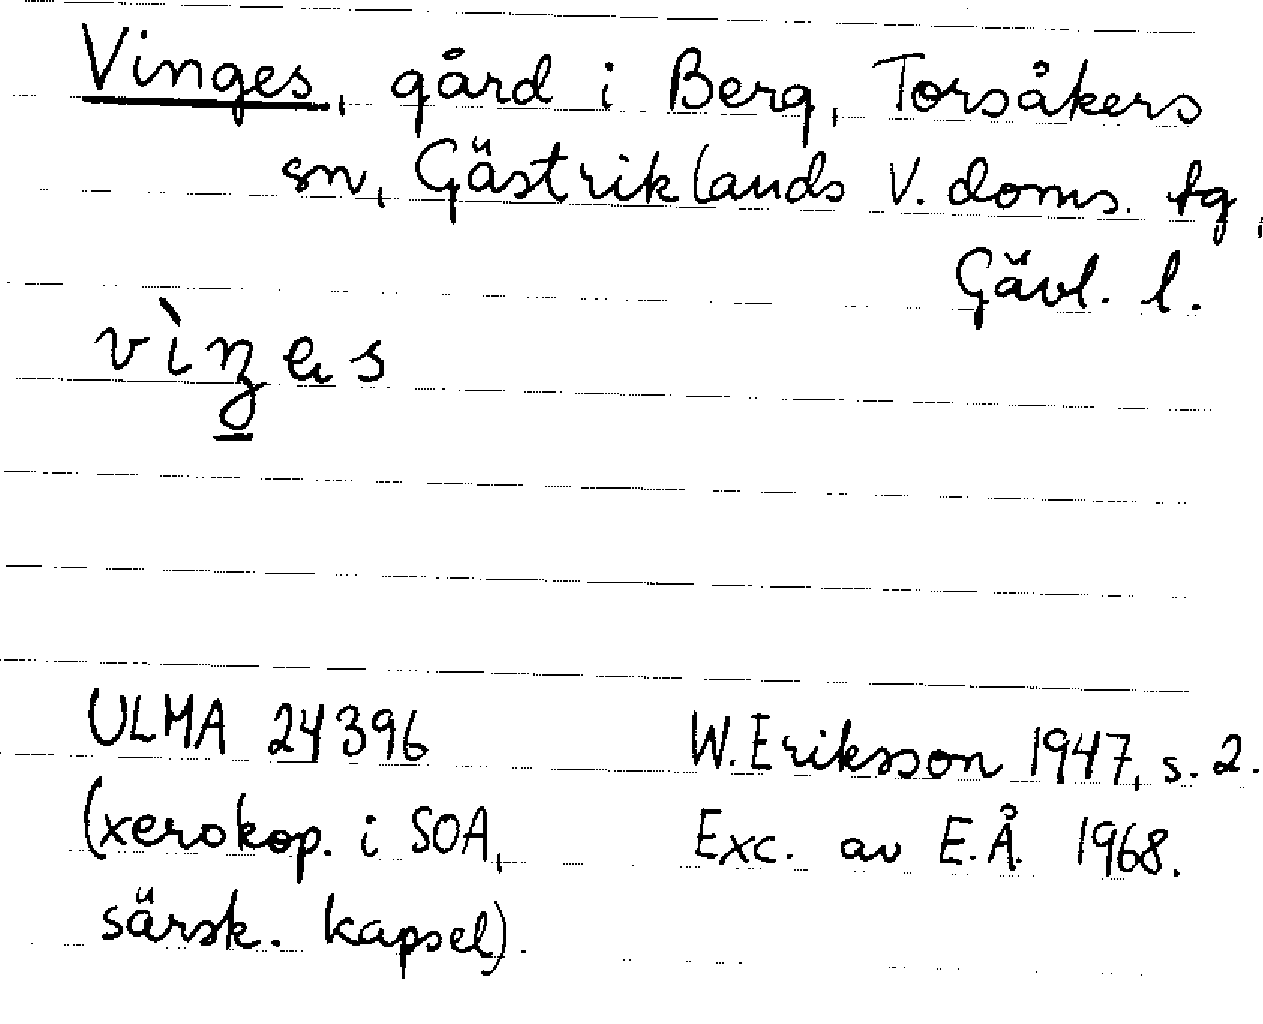 Vinges, gård i Berg, Torsåkers
sn, Gästriklands V. doms. tg,
Gävl. l.
vìŋes
ULMA 24396 W. Eriksson 1947, s. 2.
(xerokop. i SOA, Exc. av E.Å. 1968.
särsk. kapsel).